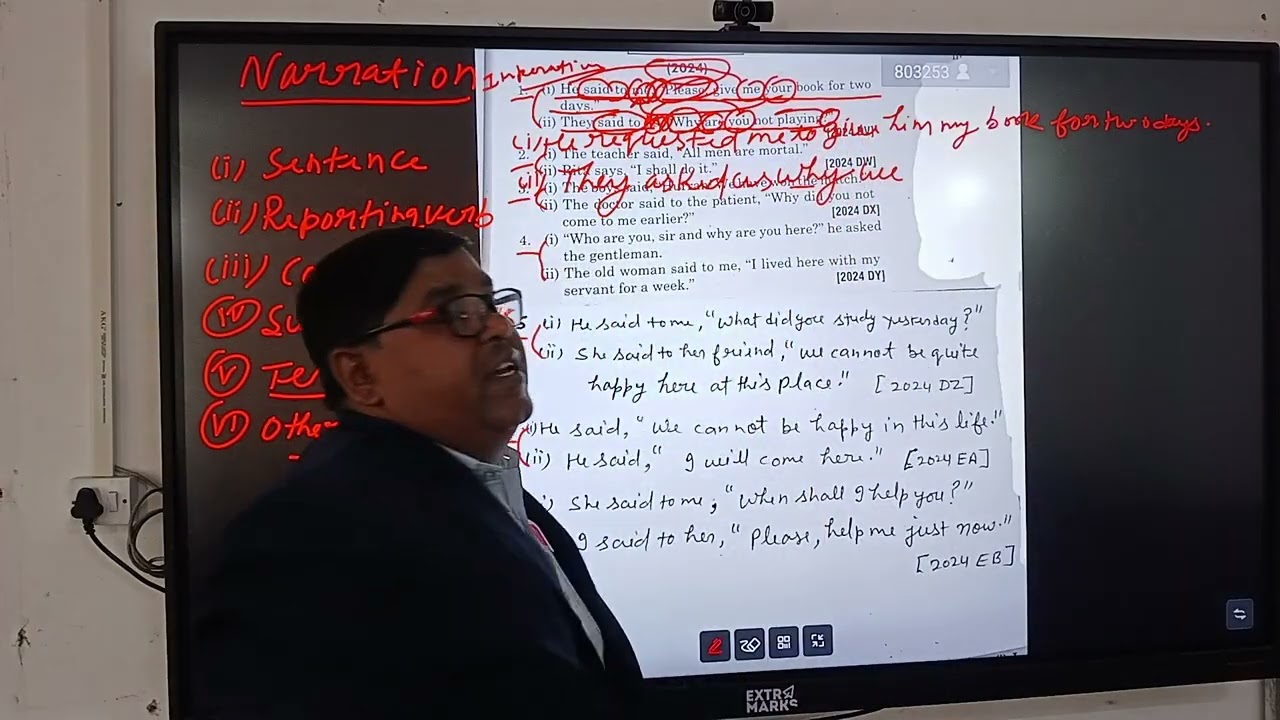 Narration
(i) Sentence
(ii) Reporting verb
(iii)
(iv) Su
(v) Te
(vi) Othe
Imperative
(2024)
803253
1. (i) He said to me, "Please give me your book for two
days."
(ii) They said to "Why are you not playing
(i) He requested me to give him my book for two days.
2. (i) The teacher said, "All men are mortal."
[2024 DW]
(ii) Rita says, "I shall do it."
(ii) They asked us why we
3. (i) The said,
(ii) The doctor said to the patient, "Why did you not
come to me earlier?"
[2024 DX]
4. (i) "Who are you, sir and why are you here?" he asked
the gentleman.
(ii) The old woman said to me, "I lived here with my
servant for a week."
[2024 DY]
5 (i) He said to me, "What did you study yesterday?"
(ii) She said to her friend, "We cannot be quite
happy here at this place." [2024 DZ]
i) He said, "We cannot be happy in this life."
(ii) He said, " I will come here." [2024 EA]
) She said to me, "When shall I help you?"
I said to her, "Please, help me just now."
[2024 EB]
EXTRA
MARKS